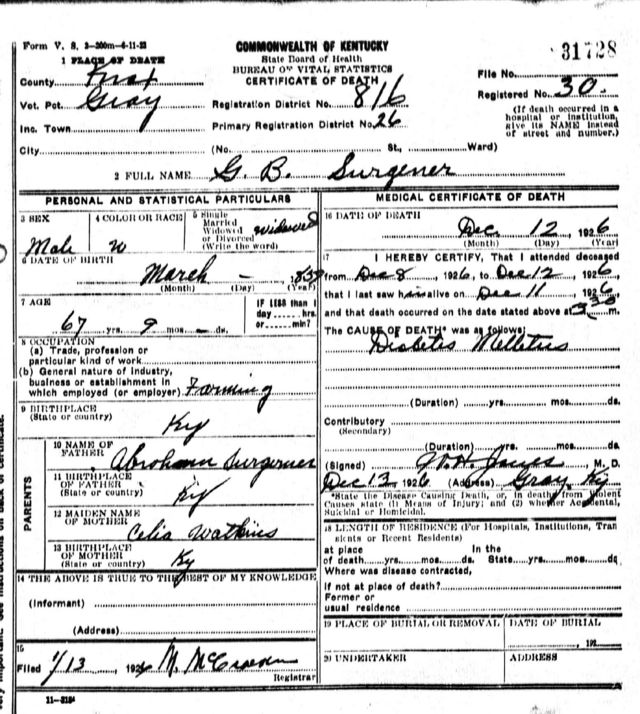 Form V. S. 3-200m-4-11-23
COMMONWEALTH OF KENTUCKY
State Board of Health
BUREAU OF VITAL STATISTICS
CERTIFICATE OF DEATH
31728
File No.
Registered No. 30.
(If death occurred in a hospital or institution, give its NAME instead of street and number.)
1 PLACE OF DEATH
County Knox
Vot. Pct. Gray
Registration District No. 816
Inc. Town
Primary Registration District No. 26
City (No. St., Ward)
2 FULL NAME G. B. Surgener
PERSONAL AND STATISTICAL PARTICULARS
3 SEX
Male
4 COLOR OR RACE
W
5 Single
Married
Widowed
or Divorced
(Write the word)
widowed
6 DATE OF BIRTH
March –
(Month) (Day) (Year)
7 AGE
67 yrs. 9 mos. – ds.
IF LESS than 1
day hrs.
or min?
8 OCCUPATION
(a) Trade, profession or
particular kind of work
(b) General nature of industry,
business or establishment in
which employed (or employer) Farming
9 BIRTHPLACE
(State or country)
Ky
PARENTS
10 NAME OF
FATHER
Abraham Surgener
11 BIRTHPLACE
OF FATHER
(State or country)
Ky
12 MAIDEN NAME
OF MOTHER
Celia Watkins
13 BIRTHPLACE
OF MOTHER
(State or country)
Ky
14 THE ABOVE IS TRUE TO THE BEST OF MY KNOWLEDGE
(Informant)
(Address)
15
Filed 1/13, 192
Registrar
11-3184
MEDICAL CERTIFICATE OF DEATH
16 DATE OF DEATH
Dec 12, 1926
(Month) (Day) (Year)
17 I HEREBY CERTIFY, That I attended deceased
from Dec 8, 1926, to Dec 12, 1926,
that I last saw him alive on Dec 11, 1926,
and that death occurred on the date stated above at m.
The CAUSE OF DEATH* was as follows:
Diabetis Melletus
(Duration) yrs. mos. ds.
Contributory
(Secondary)
(Duration) yrs. mos. ds.
(Signed) W. H. Jones, M. D.
Dec 13, 1926 (Address) Gray, Ky
*State the Disease Causing Death, or, in death from Violent
Causes state (1) Means of Injury; and (2) whether Accidental,
Suicidal or Homicidal.
18 LENGTH OF RESIDENCE (For Hospitals, Institutions, Tran
sients or Recent Residents)
at place In the
of death yrs. mos. ds. State yrs. mos. ds
Where was disease contracted,
If not at place of death?
Former or
usual residence
19 PLACE OF BURIAL OR REMOVAL
DATE OF BURIAL
, 192
20 UNDERTAKER
ADDRESS